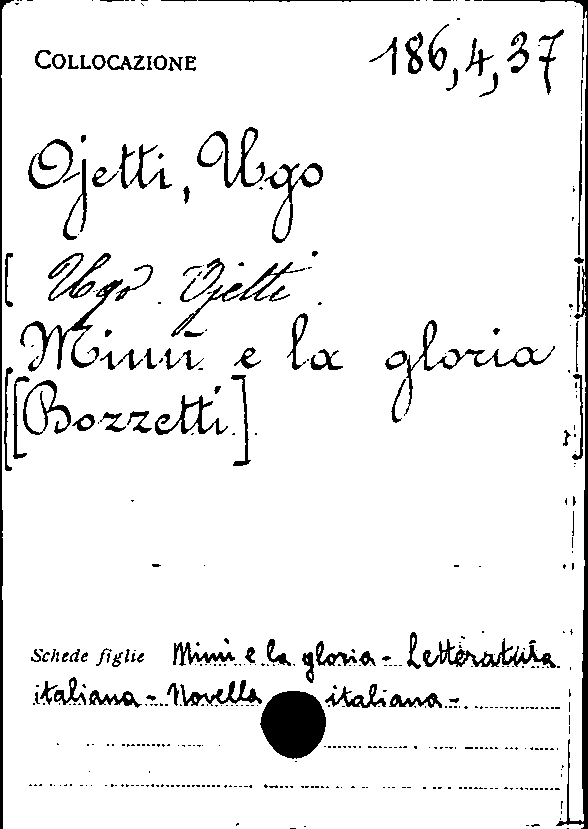 COLLOCAZIONE 186,4,37
Ojetti, Ugo
[ Ugo Ojetti.
Mimì e la gloria
[Bozzetti]
Schede figlie Mimì e la gloria - Letteratura
italiana - Novella italiana -